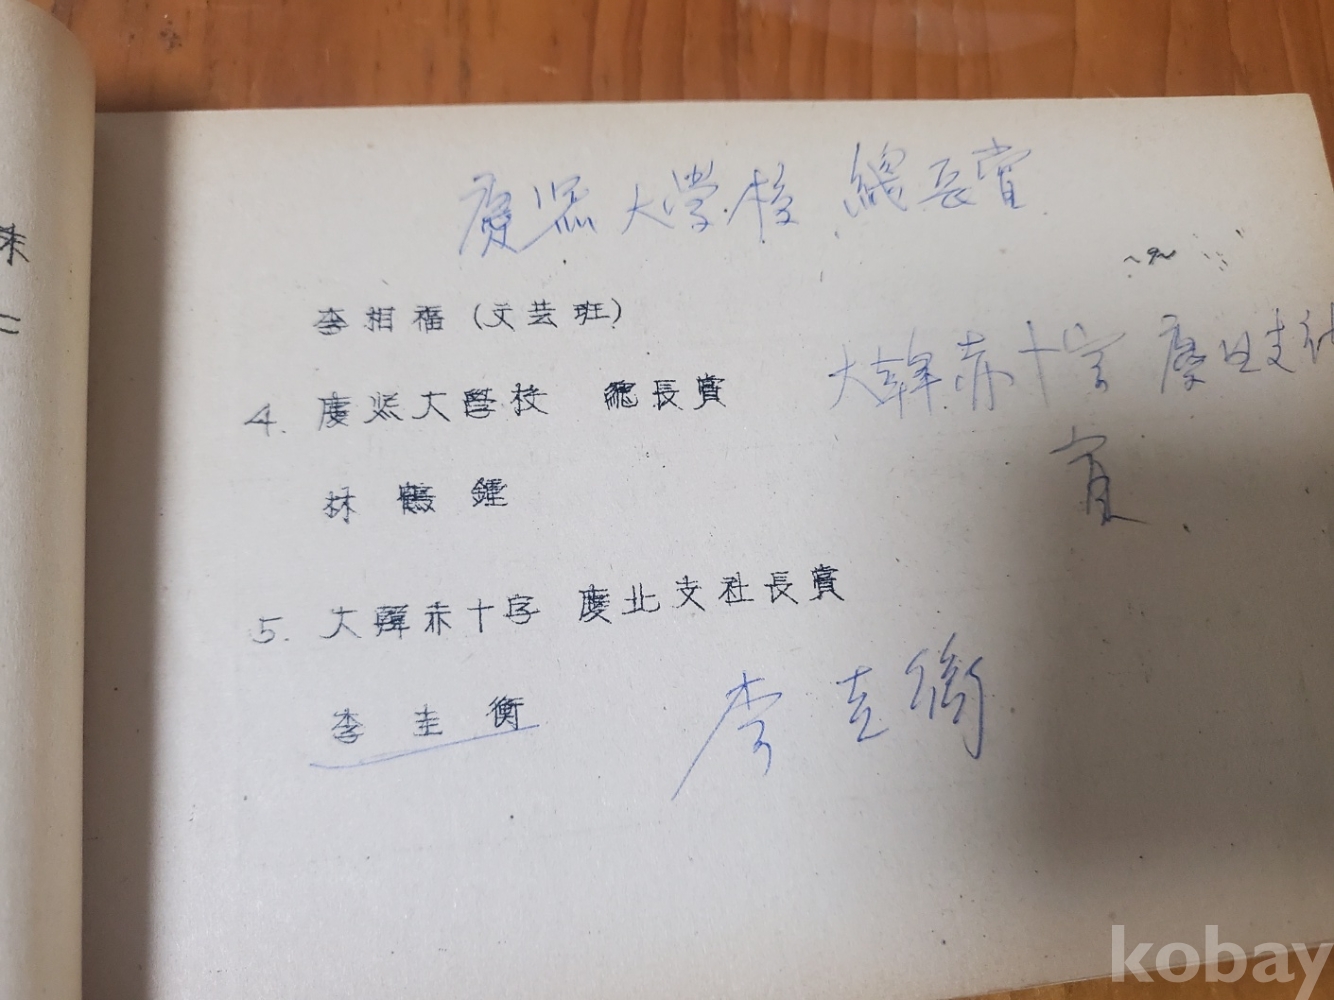 慶熙大学校 總長賞
李相福 (文芸班)
4. 慶熙大學校 總長賞
大韓赤十字 慶北支社
林 鶴 鍾
5. 大韓赤十字 慶北支社長賞
李 圭 衡
李 圭 衡
kobay